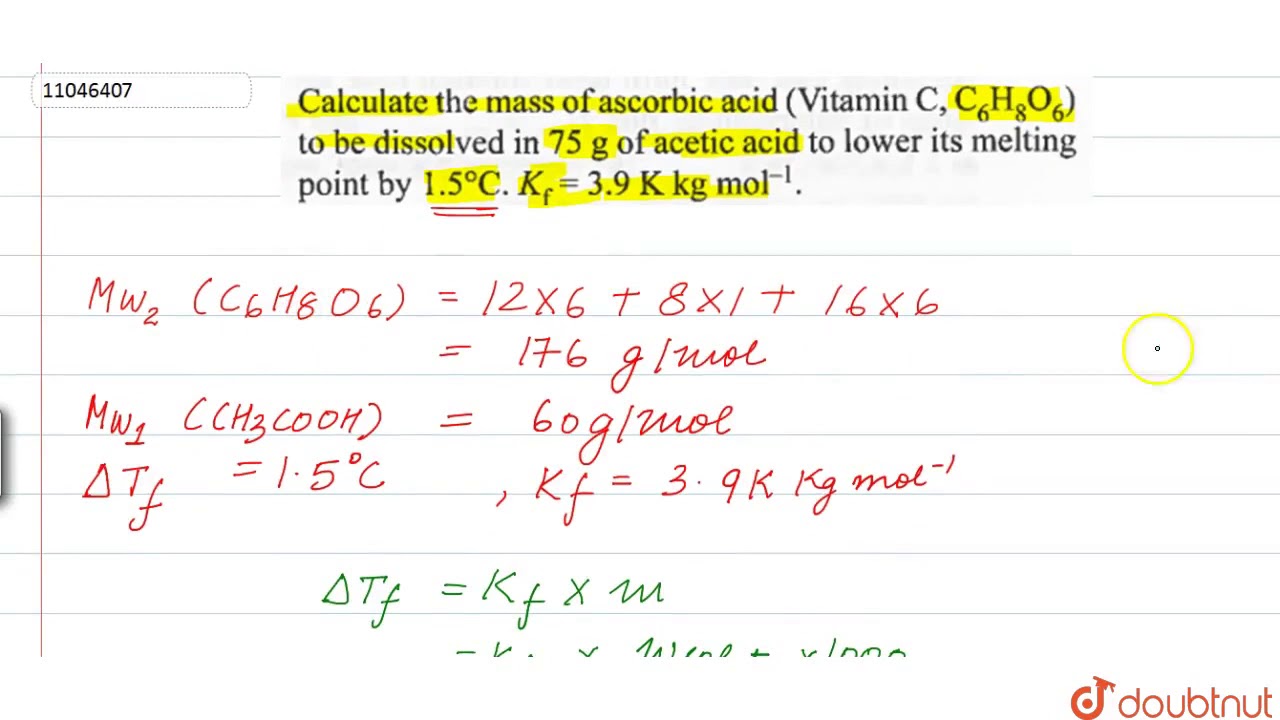 11046407
Calculate the mass of ascorbic acid (Vitamin C, C₆H₈O₆)
to be dissolved in 75 g of acetic acid to lower its melting
point by 1.5°C. K_f = 3.9 K kg mol⁻¹.
Mw₂ (C₆H₈O₆) = 12×6 + 8×1 + 16×6
= 176 g/mol
Mw₁ (CH₃COOH) = 60g/mol
ΔT_f = 1.5°C , K_f = 3.9K Kg mol⁻¹
ΔT_f = K_f × m
doubtnut